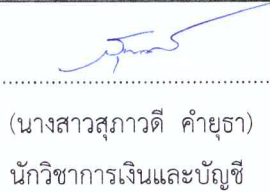 (นางสาวสุภาวดี คำยุธา)
นักวิชาการเงินและบัญชี